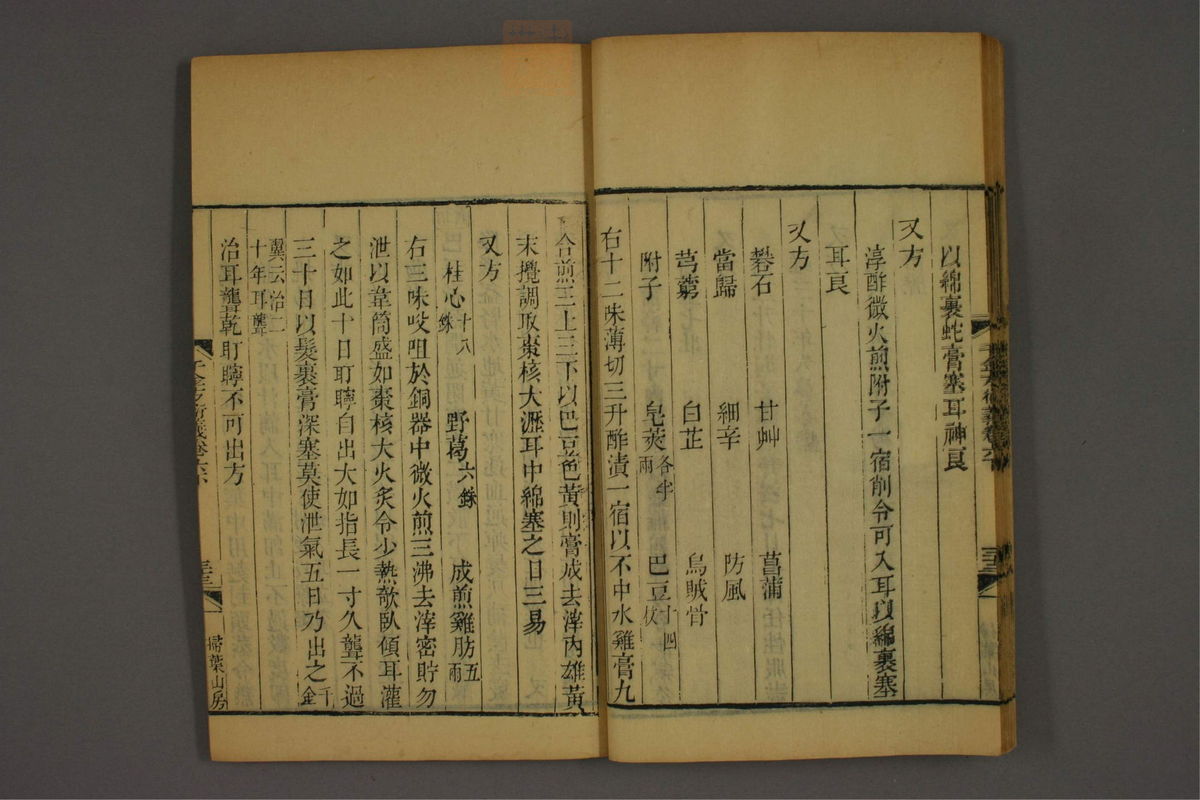 以綿裹蛇膏塞耳神良
又方
淳酢微火煎附子一宿削令可入耳以綿裹塞
耳良
又方
礬石 甘艸 菖蒲
當歸 細辛 防風
芎藭 白芷 烏賊骨
附子 皂莢各半兩 巴豆十四枚
右十二味薄切三升酢漬一宿以不中水雞膏九
合煎三上三下以巴豆色黃則膏成去滓內雄黃
末攪調取棗核大瀝耳中綿塞之日三易
又方
桂心十八銖 野葛六銖 成煎雞肪五兩
右三味㕮咀於銅器中微火煎三沸去滓密貯勿
泄以葦筒盛如棗核大火炙令少熱欹臥傾耳灌
之如此十日耵聹自出大如指長一寸久聾不過
三十日以髮裹膏深塞莫使泄氣五日乃出之千金
翼云治二十年耳聾
治耳聾乾耵聹不可出方
千金方衍義卷六
三十三
掃葉山房